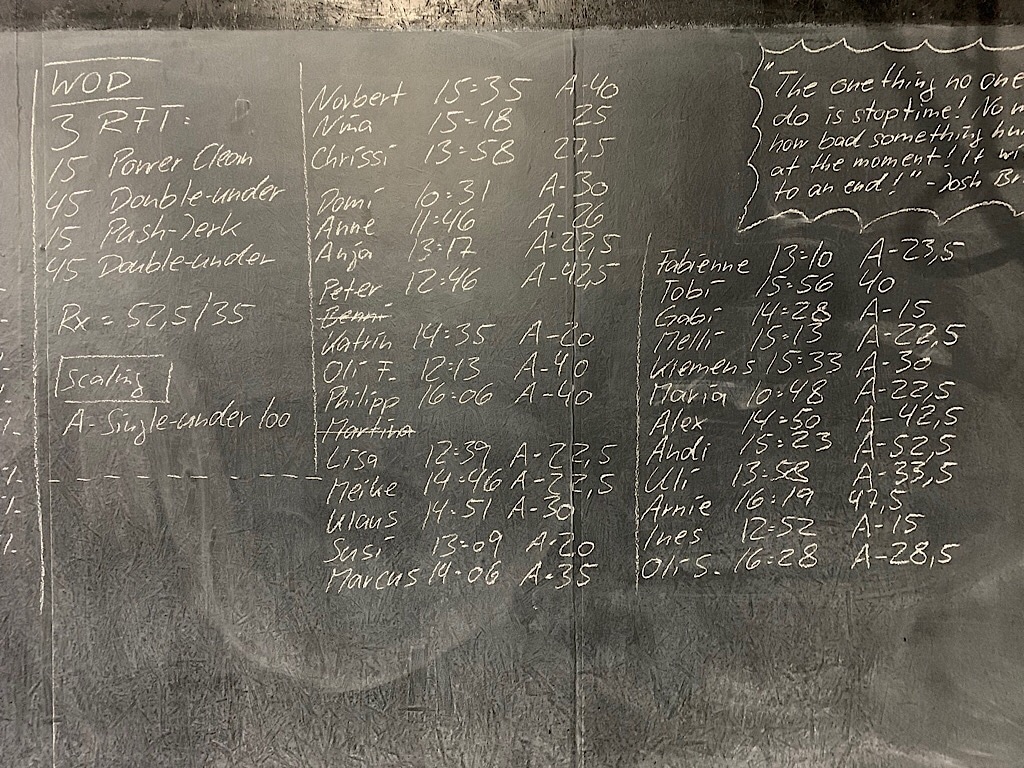 WOD
3 RFT:
15 Power Clean
45 Double-under
15 Push-Jerk
45 Double-under
Rx = 52,5/35
Scaling
A- Single-under 100
Norbert 15:35 A-40
Nina 15-18 25
Chrissi 13:58 27,5
Domi 10:31 A-30
Anne 11:46 A-26
Anja 13:17 A-22,5
Peter 12:46 A-42,5
Benni
Katrin 14:35 A-20
Oli F. 12:13 A-40
Philipp 16:06 A-40
Martina
Lisa 12:39 A-22,5
Meike 14:46 A-22,5
Klaus 14:51 A-30
Susi 13:09 A-20
Marcus 14:06 A-35
"The one thing no one
do is stop time! No
how bad something
at the moment! It
to an end!" - Josh
Fabienne 13:10 A-23,5
Tobi 15:56 40
Gabi 14:28 A-15
Melli 15:13 A-22,5
Klemens 15:33 A-30
Maria 10:48 A-22,5
Alex 14:50 A-42,5
Andi 15:23 A-52,5
Uli 13:58 A-33,5
Arnie 16:19 47,5
Ines 12:52 A-15
Oli S. 16:28 A-28,5